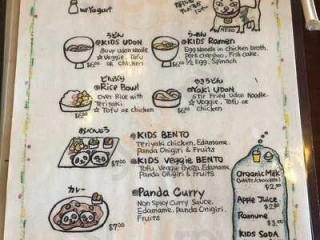 w/Yogurt
うどん
KIDS UDON
Soup Udon Noodle
☆ Veggie, Tofu
or Chicken
$6.00
らーめん
KIDS Ramen
Egg Noodle in Chicken broth,
Pork Charshao, Fish cake,
1/2 Egg, Spinach
$6.00
どんぶり
Rice Bowl
Over Rice with
Teriyaki
☆ Tofu or Chicken
$6.00
やきうどん
Yaki UDON
Stir Fried Udon Noodle.
☆ Veggie, Tofu or
Chicken
$6.00
おべんとう
KIDS BENTO
Teriyaki chicken, Edamame,
Panda Onigiri & Fruits
$7.00
KIDS Veggie BENTO
Tofu, Veggie Gyoza, Edamame,
Panda Onigiri & Fruits
カレー
Panda Curry
Non Spicy Curry Sauce,
Edamame, Panda Onigiri,
Fruits
$7.00
Organic Milk
$2.
Apple Juice
$2.
Ramune
$3.
KIDS SODA